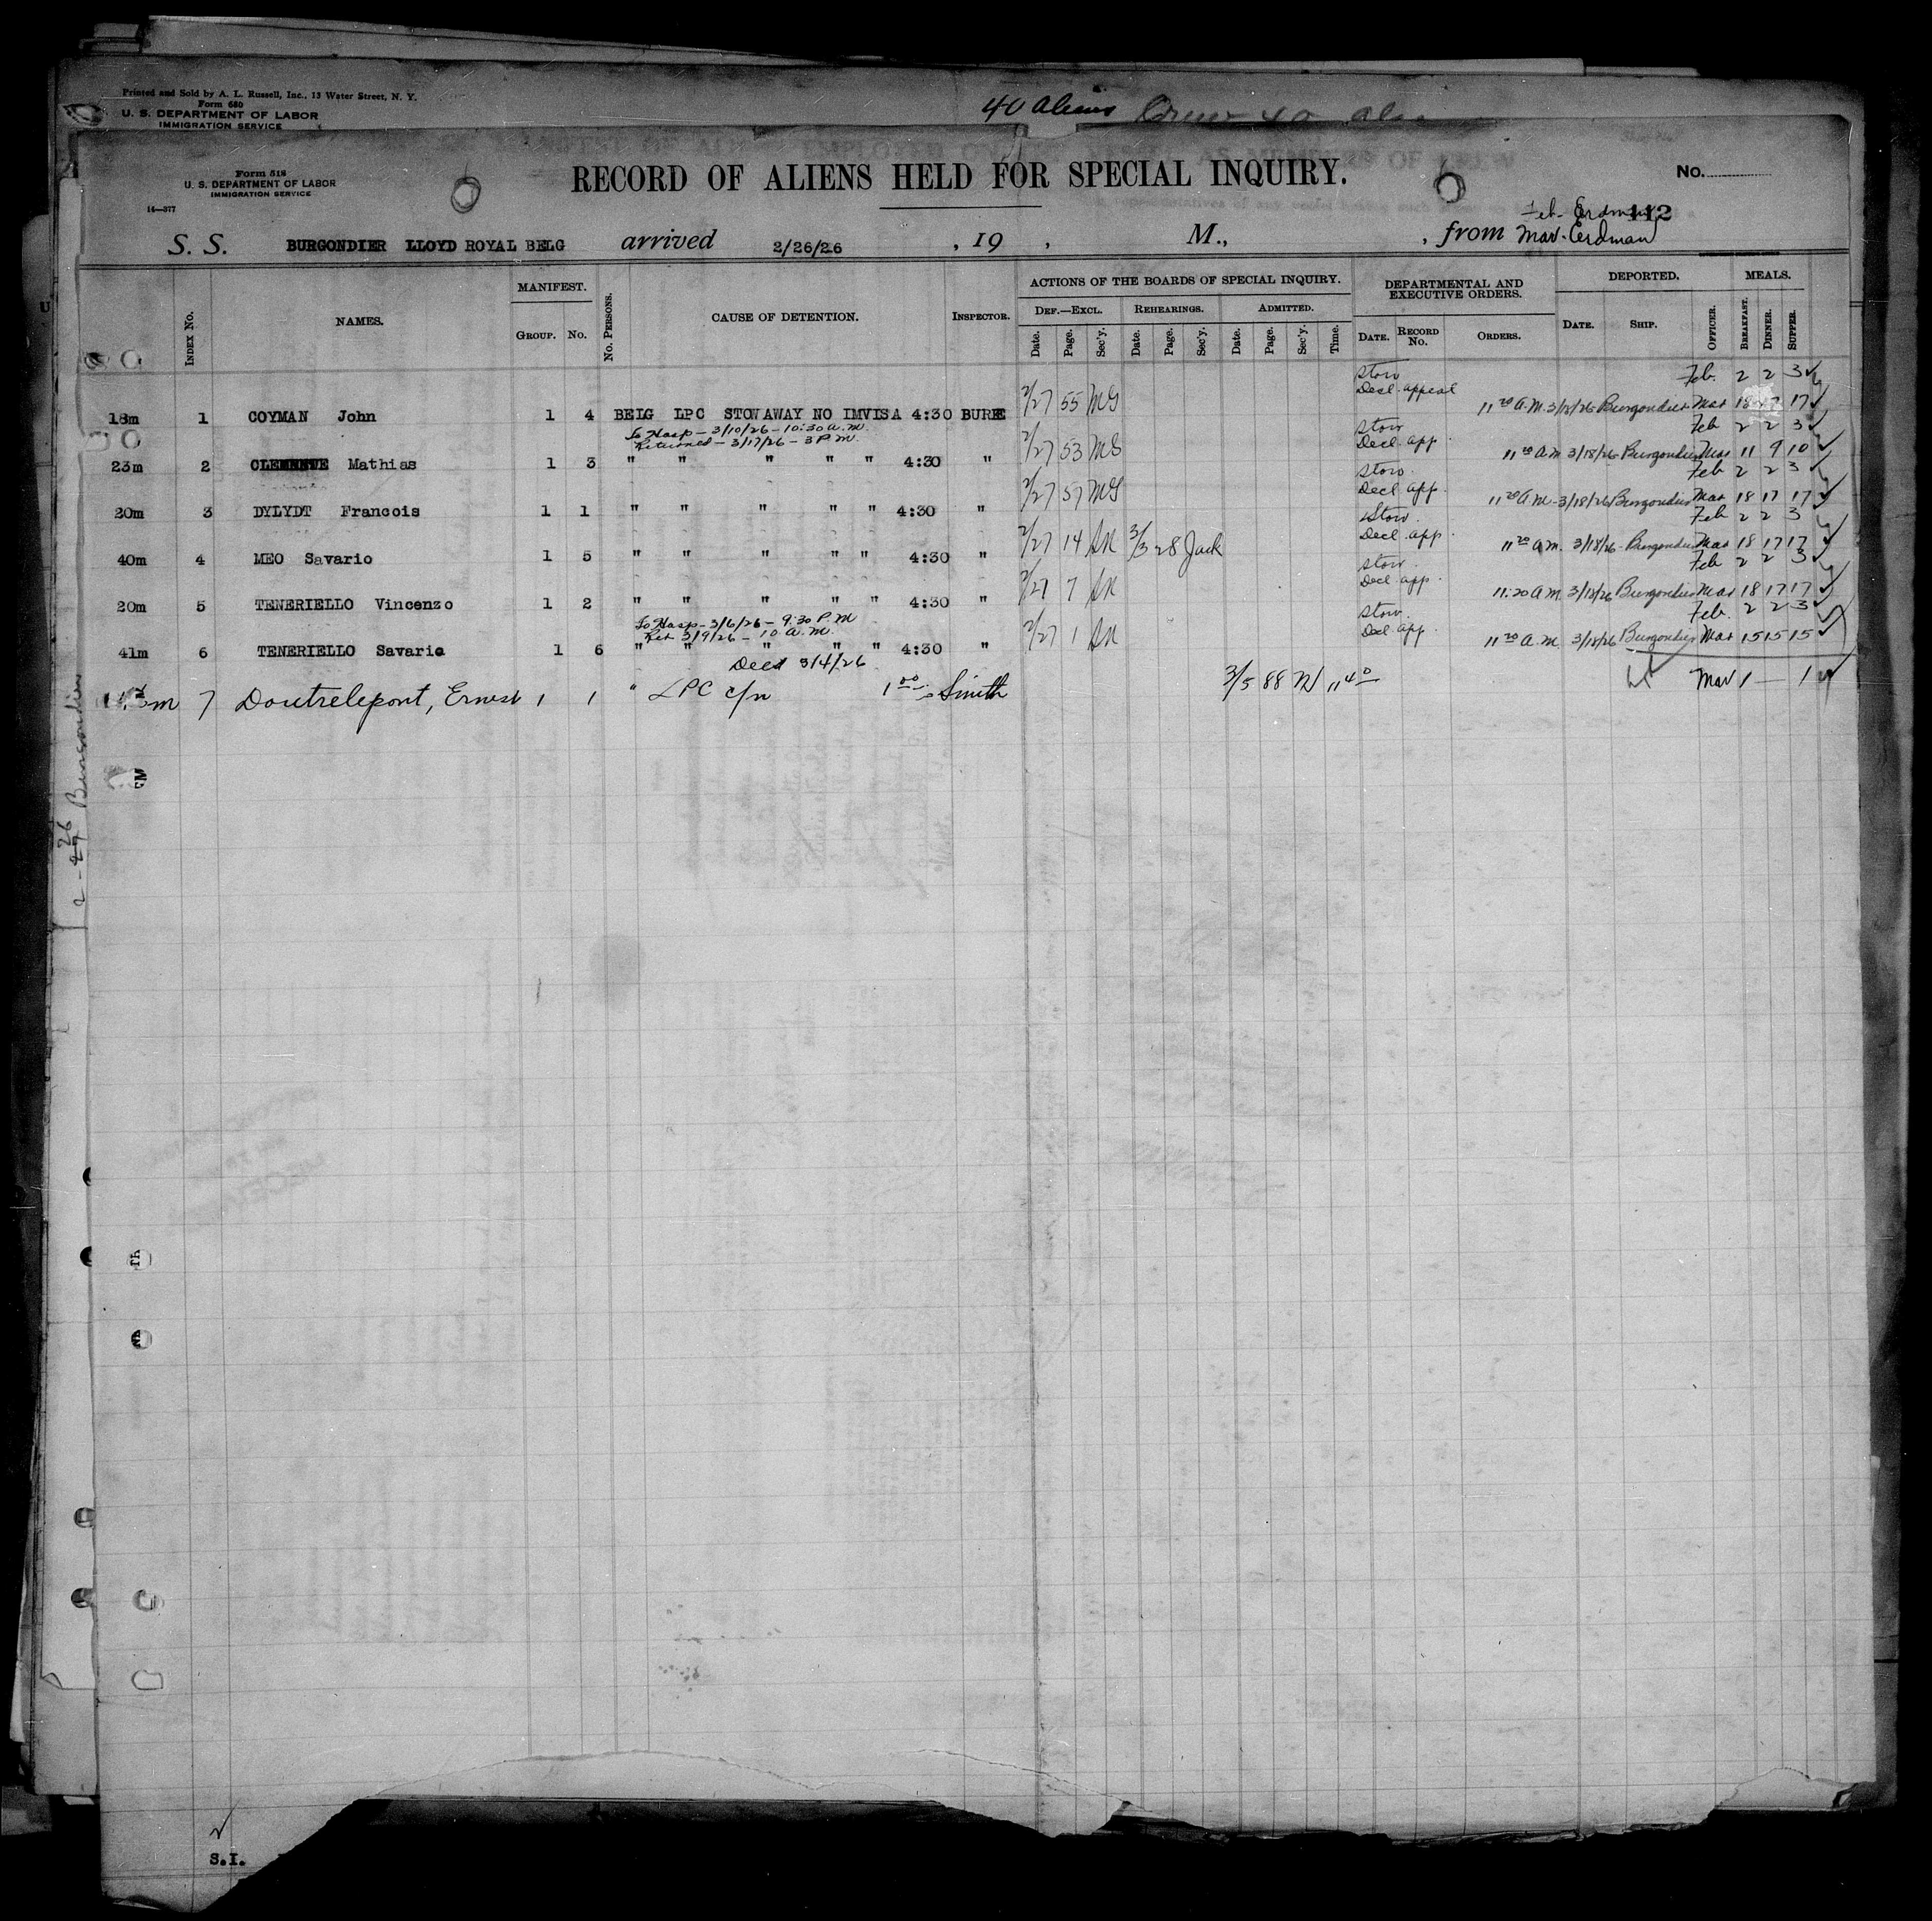 Printed and Sold by A. L. Russell, Inc., 13 Water Street, N. Y.
Form 680
U. S. DEPARTMENT OF LABOR
IMMIGRATION SERVICE
40 aliens Crew 40
Form 518
U. S. DEPARTMENT OF LABOR
IMMIGRATION SERVICE
14—377
RECORD OF ALIENS HELD FOR SPECIAL INQUIRY.
No.
112
Feb - Erdman
Mar - Erdman
S. S. BURGONDIER LLOYD ROYAL BELG arrived 2/26/26 , 19 , M., , from
INDEX No. NAMES. MANIFEST. GROUP. No. No. PERSONS. CAUSE OF DETENTION. INSPECTOR.
ACTIONS OF THE BOARDS OF SPECIAL INQUIRY. DEF.—EXCL. Date. Page. Sec'y. REHEARINGS. Date. Page. Sec'y. ADMITTED. Date. Page. Sec'y. Time.
DEPARTMENTAL AND EXECUTIVE ORDERS. DATE. RECORD No. ORDERS. DEPORTED. DATE. SHIP. OFFICER. MEALS. BREAKFAST. DINNER. SUPPER.
Stow Feb. 2 2 3
Decl. appeal
18m 1 COYMAN John 1 4 BELG LPC STOWAWAY NO IMVISA 4:30 BURE 2/27 55 MG 11 20 A.M. 3/18/26 Burgondier Mar 18 17 17
To Hosp - 3/10/26 - 10:30 a.m. Stow Feb 2 2 3
Returned - 3/17/26 - 3 P.M. Decl. app.
23m 2 CLEMENTE Mathias 1 3 " " " " " 4:30 " 2/27 53 MG 11 20 A.M. 3/18/26 Burgondier Mar 11 9 10
Stow. Feb 2 2 3
Decl. app.
20m 3 DYLYDT Francois 1 1 " " " " " 4:30 " 2/27 57 MG 11 20 A.M. - 3/18/26 Burgondier Mar 18 17 17
Stow. Feb 2 2 3
Decl. app.
40m 4 MEO Savario 1 5 " " " " " 4:30 " 2/27 14 3/3 28 Jack 11 20 A.M. 3/18/26 - Burgondier Mar 18 17 17
Stow. Feb 2 2 3
Decl. app.
20m 5 TENERIELLO Vincenzo 1 2 " " " " " 4:30 " 2/27 7 11:20 A.M. 3/18/26 Burgondier Mar 18 17 17
To Hosp - 3/6/26 - 9:30 P.M. Stow. Feb. 2 2 3
Ret 3/9/26 - 10 a.m. Decl. app.
41m 6 TENERIELLO Savario 1 6 " " " " " 4:30 " 2/27 1 11 20 A.M. 3/18/26 Burgondier Mar 15 15 15
Decd 3/4/26
7 Doutrelepont, Ernest 1 1 " LPC c/n 1 00 Smith 3/5 88 11 40 Mar 1 — 1
2 - 26 Burgondier
S.I.